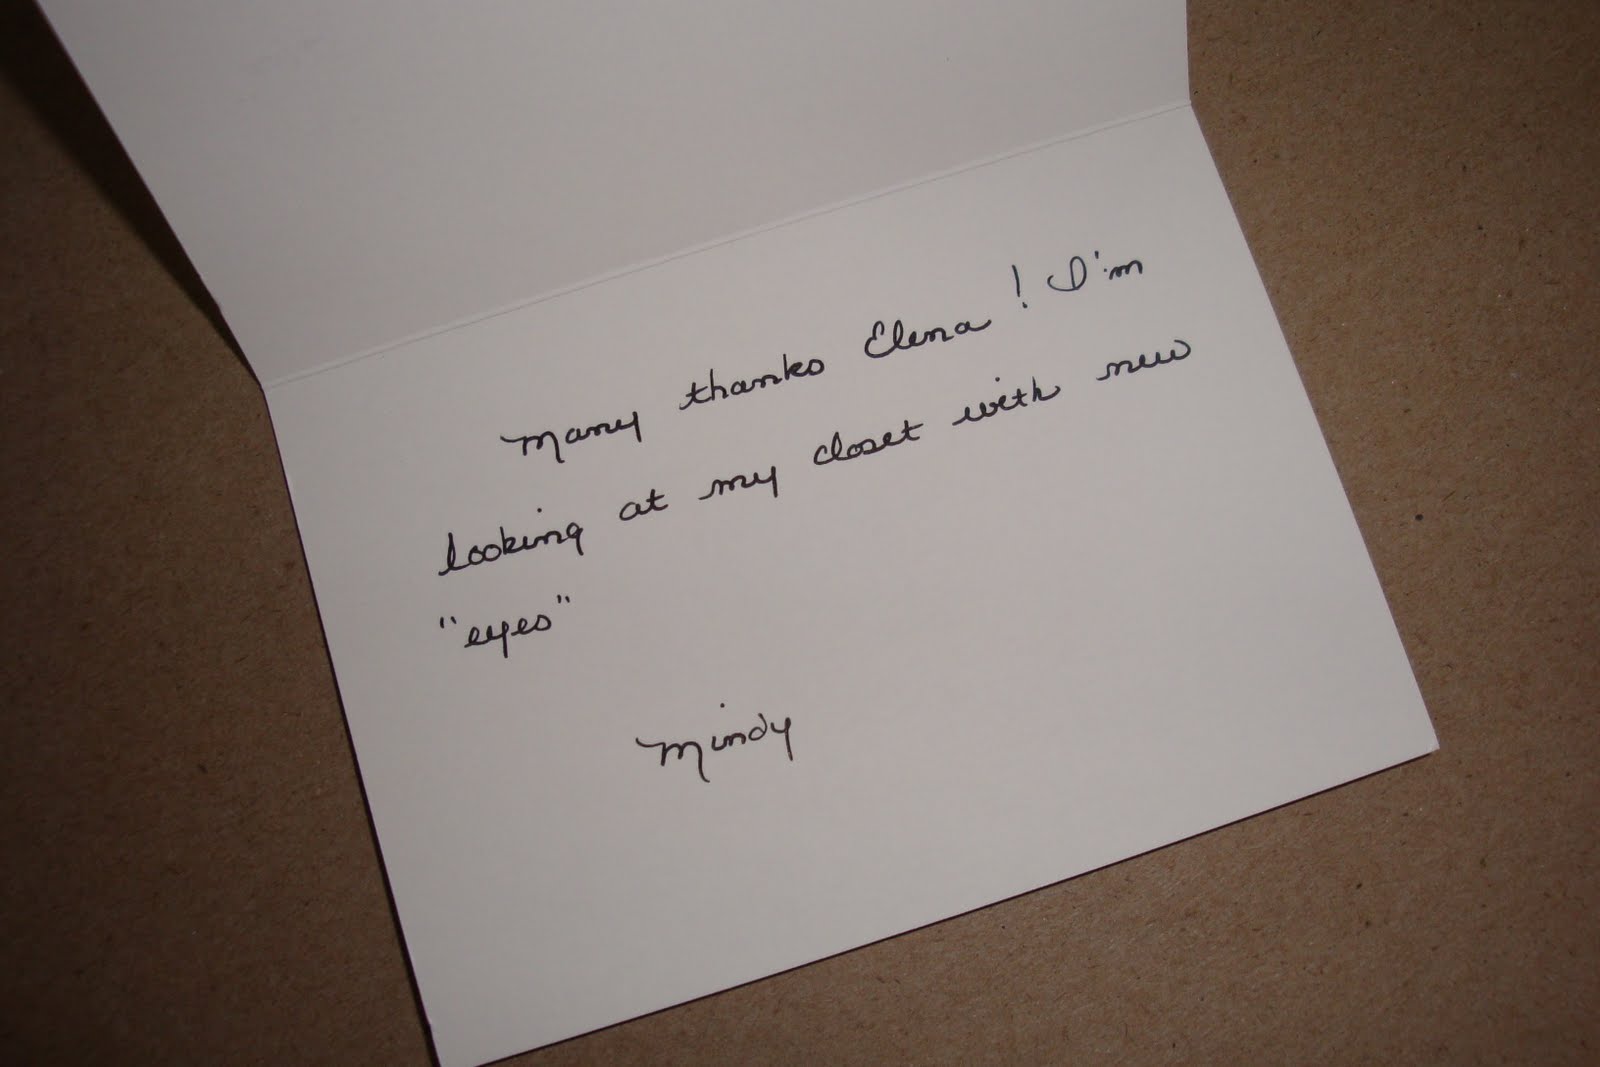 Many thanks Elena! I'm
looking at my closet with new
"eyes"
Mindy